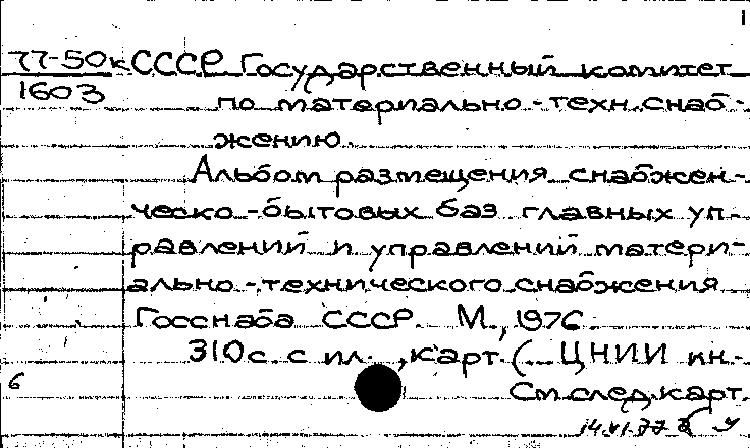 1
77-50к СССР. Государственный комитет
1603
по материально-техн. снаб-
жению.
Альбом размещения снабжен-
ческо-бытовых баз главных уп-
равлений и управлений матери-
ально-технического снабжения
Госснаба СССР. М., 1976.
310 с. с ил., карт. (... ЦНИИ ин.
6
См. след. карт.
14.VI.77